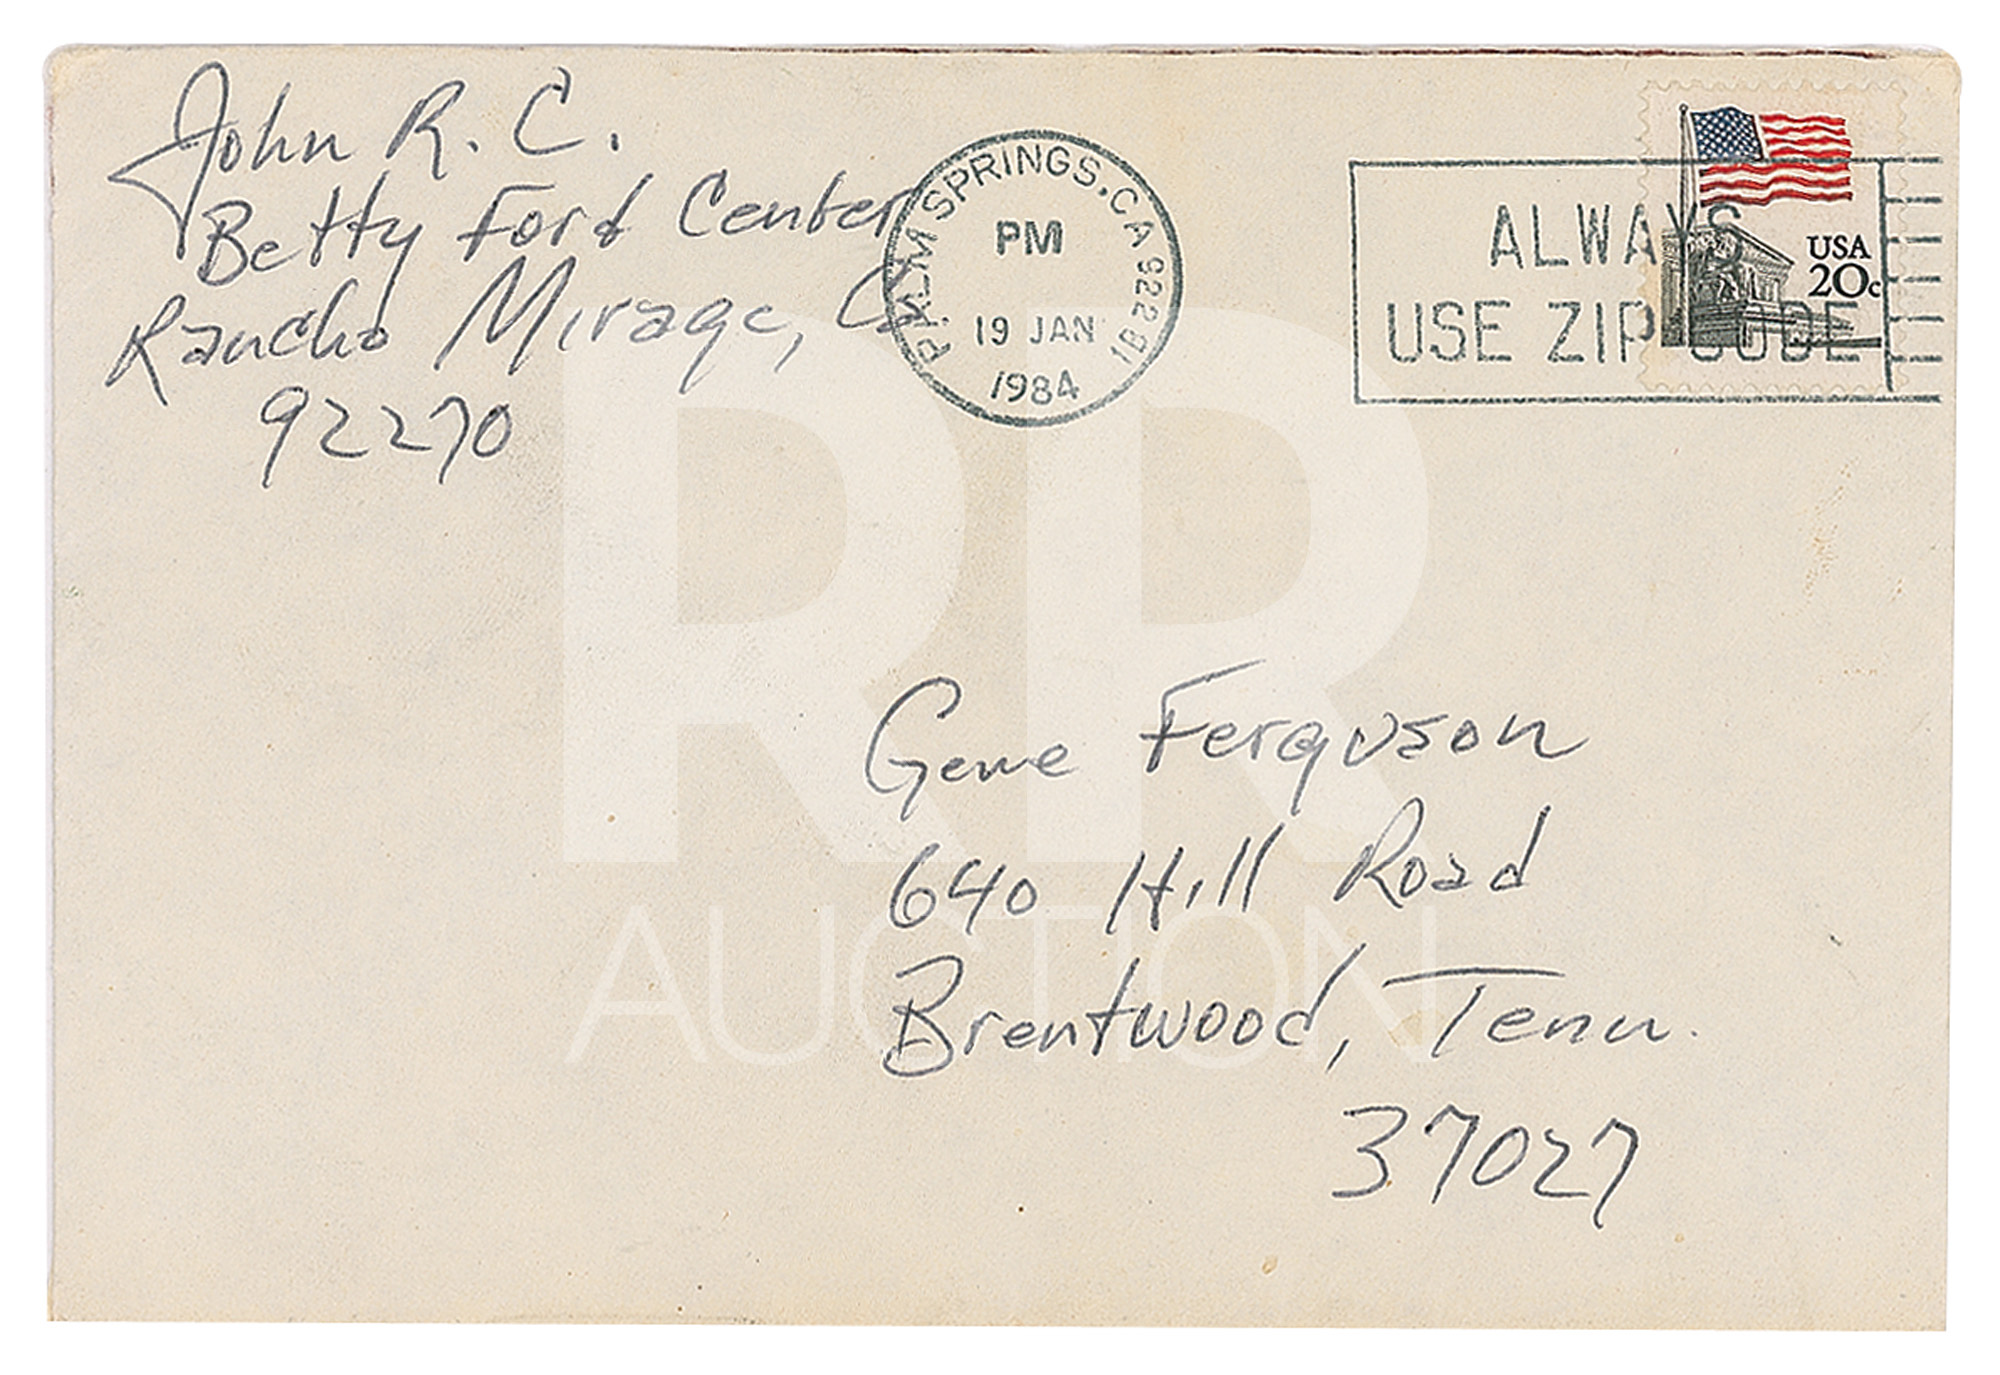 John R. C.
Betty Ford Center
Rancho Mirage, Ca
92270
PALM SPRINGS, CA 922
PM
19 JAN
1984
ALWAYS
USE ZIP CODE
USA
20c
Gene Ferguson
640 Hill Road
Brentwood, Tenn.
37027
RR
AUCTION